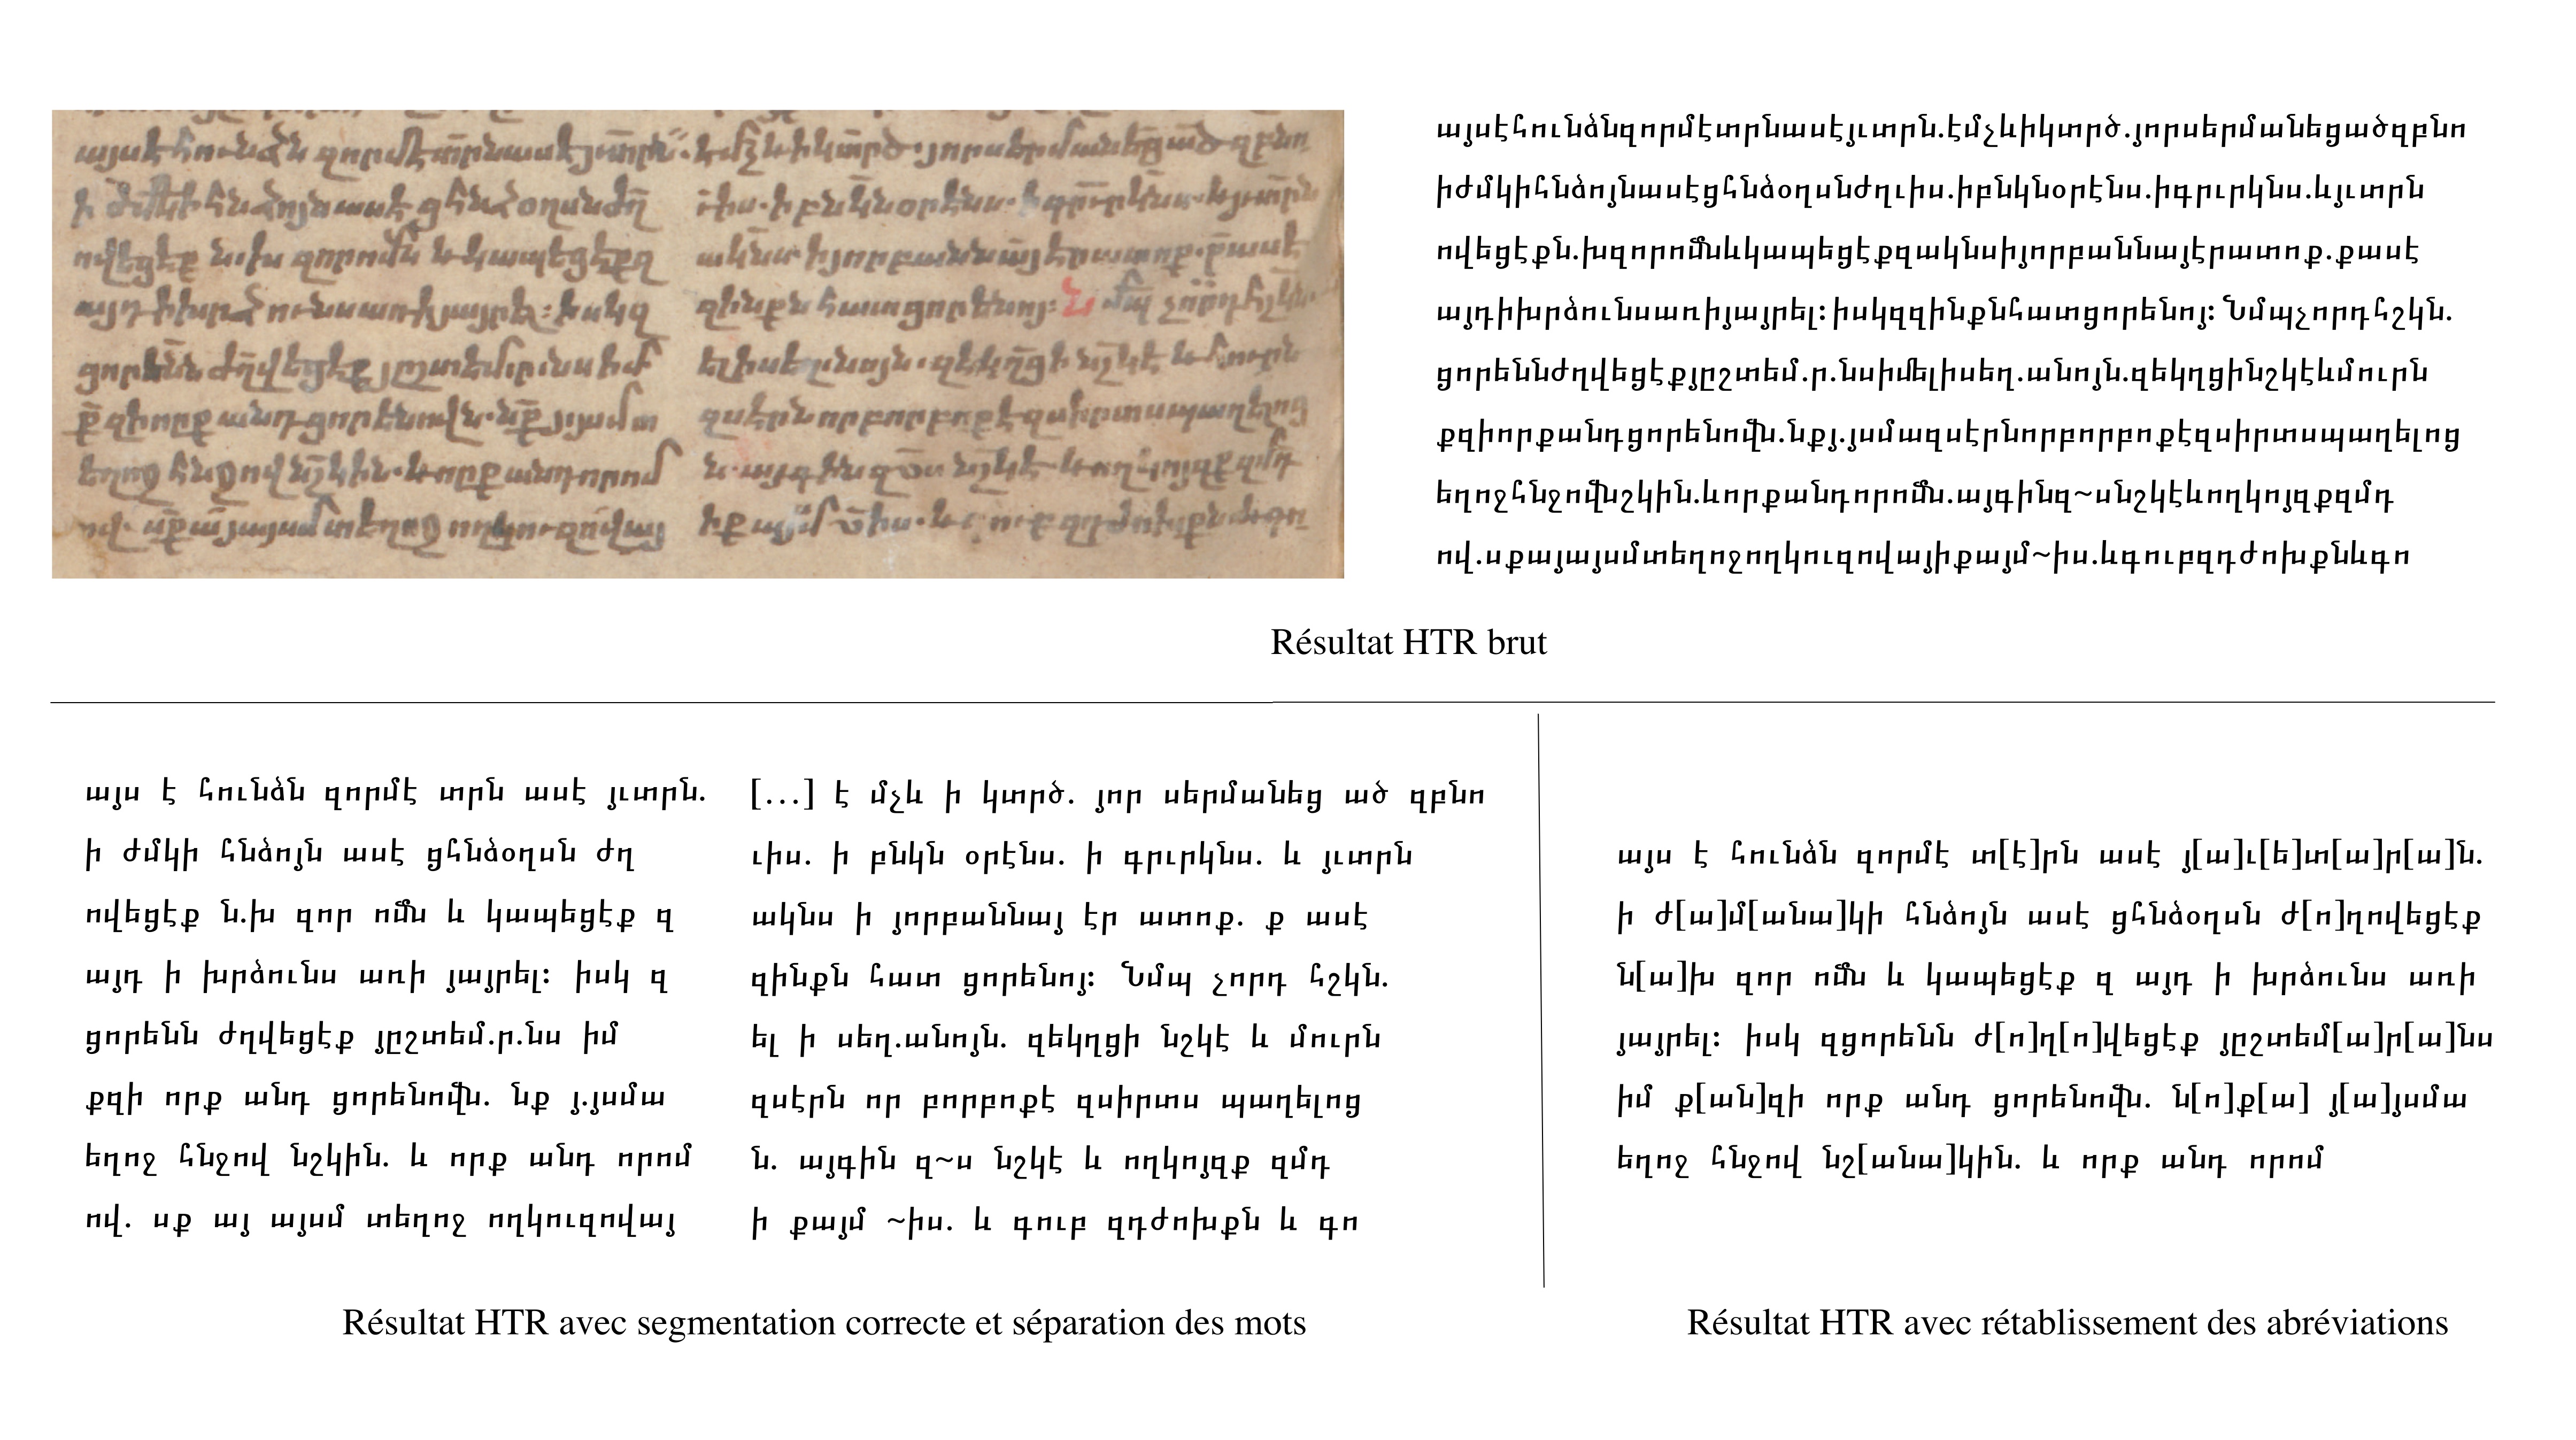 այսէհունձնզորմէտրնասէյւտրն.էմչևիկտրծ.յորսերմանեցածզբնո
իժմկիհնձոյնասէցհնձօղսնժղւիս.իբնկնօրէնս.իգրւրկնս.ևյւտրն
ովեցէքն.խզորոմնևկապեցէքզակնսիյորբաննայէրատոք.քասէ
այդիխրձունսառիյայրել: իսկզզինքնհատցորենոյ: Նմպչորդհշկն.
ցորեննժղվեցէքյըշտեմ.ր.նսիմելիսեղ.անոյն.զեկղցինշկէևմուրն
քզիորքանդցորենովն.նքյ.յսմազսէրնորբորբոքէզսիրտսպաղելոց
եղոջհնջովնշկին.ևորքանդորոմն.այգինզ~սնշկէևողկոյզքզմդ
ով.սքայայսմտեղոջողկուզովայիքայմ~իս.ևգուբզդժոխքնևգո
Résultat HTR brut
այս է հունձն զորմէ տրն ասէ յւտրն.
ի ժմկի հնձոյն ասէ ցհնձօղսն ժղ
ովեցէք ն.խ զոր ոմն և կապեցէք զ
այդ ի խրձունս առի յայրել: իսկ զ
ցորենն ժղվեցէք յըշտեմ.ր.նս իմ
քզի որք անդ ցորենովն. նք յ.յսմա
եղոջ հնջով նշկին. և որք անդ որոմ
ով. սք այ այսմ տեղոջ ողկուզովայ
[...] է մչև ի կտրծ. յոր սերմանեց ած զբնո
ւիս. ի բնկն օրէնս. ի գրւրկնս. և յւտրն
ակնս ի յորբաննայ էր ատոք. ք ասէ
զինքն հատ ցորենոյ: Նմպ չորդ հշկն.
ել ի սեղ.անոյն. զեկղցի նշկէ և մուրն
զսէրն որ բորբոքէ զսիրտս պաղելոց
ն. այգին զ~ս նշկէ և ողկոյզք զմդ
ի քայմ ~իս. և գուբ զդժոխքն և գո
Résultat HTR avec segmentation correcte et séparation des mots
այս է հունձն զորմէ տ[է]րն ասէ յ[ա]ւ[ե]տ[ա]ր[ա]ն.
ի ժ[ա]մ[անա]կի հնձոյն ասէ ցհնձօղսն ժ[ո]ղովեցէք
ն[ա]խ զոր ոմն և կապեցէք զ այդ ի խրձունս առի
յայրել: իսկ զցորենն ժ[ո]ղ[ո]վեցէք յըշտեմ[ա]ր[ա]նս
իմ ք[ան]զի որք անդ ցորենովն. ն[ո]ք[ա] յ[ա]յսմա
եղոջ հնջով նշ[անա]կին. և որք անդ որոմ
Résultat HTR avec rétablissement des abréviations